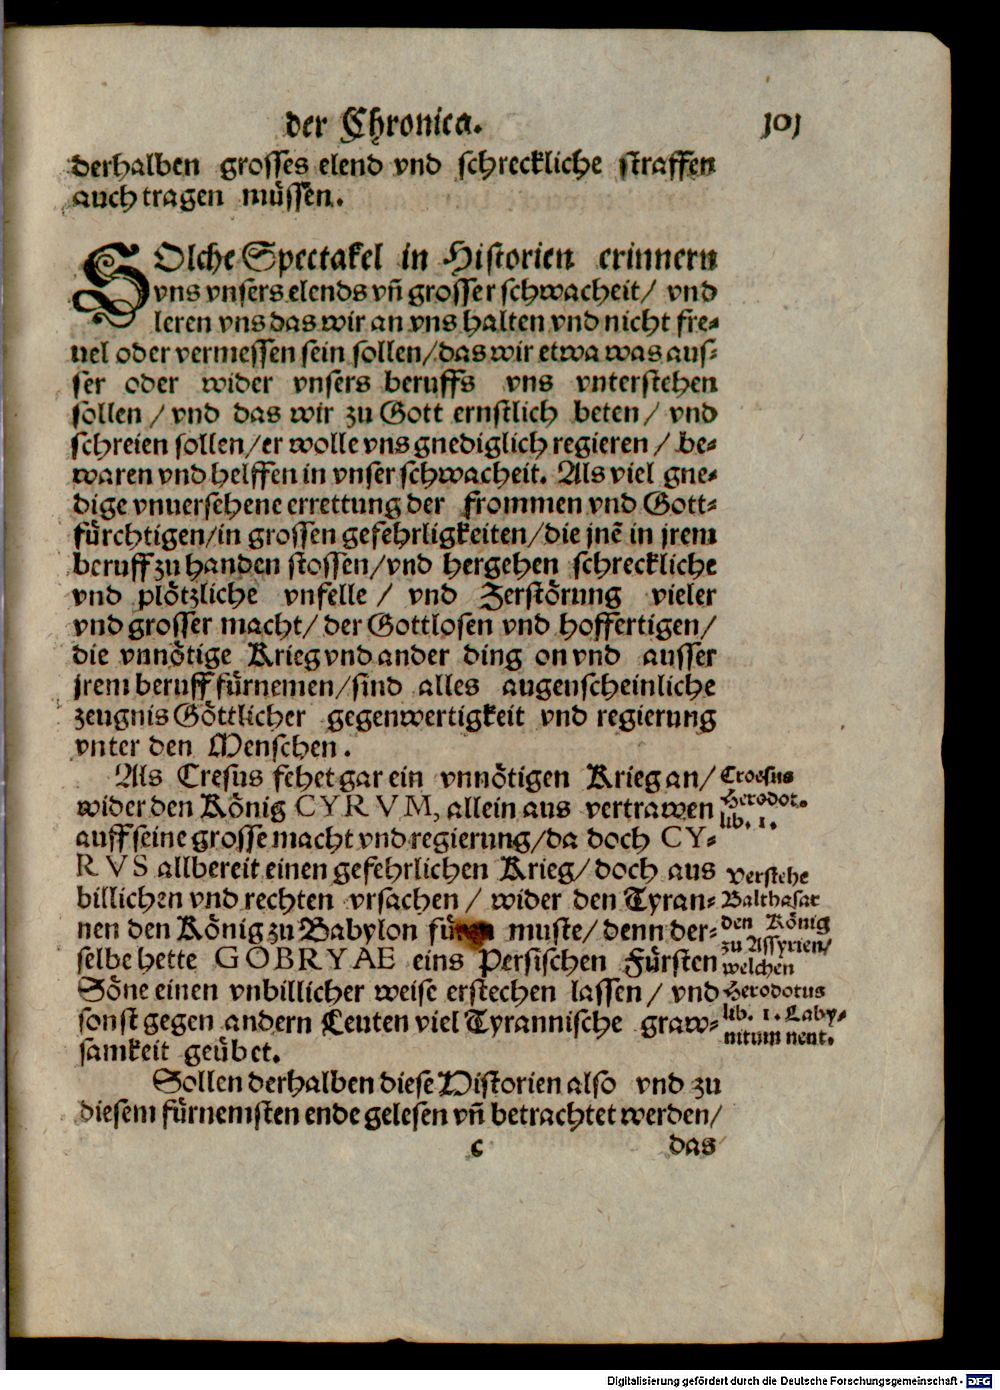 der Chronica.
101
derhalben grosses elend vnd schreckliche straffen
auch tragen müssen.
SOlche Spectakel in Historien erinnern
vns vnsers elends vñ grosser schwacheit/ vnd
leren vns das wir an vns halten vnd nicht fre-
uel oder vermessen sein sollen/das wir etwa was aus-
ser oder wider vnsers beruffs vns vnterstehen
sollen/ vnd das wir zu Gott ernstlich beten/ vnd
schreien sollen/er wolle vns gnediglich regieren/ be-
waren vnd helffen in vnser schwacheit. Als viel gne-
dige vnuersehene errettung der frommen vnd Gott-
fürchtigen/in grossen gefehrligkeiten/die jnẽ in jrem
beruff zu handen stossen/vnd hergehen schreckliche
vnd plötzliche vnfelle/ vnd Zerstörung vieler
vnd grosser macht/ der Gottlosen vnd hoffertigen/
die vnnötige Krieg vnd ander ding on vnd ausser
jrem beruff fürnemen/sind alles augenscheinliche
zeugnis Göttlicher gegenwertigkeit vnd regierung
vnter den Menschen.
Als Cresus fehet gar ein vnnötigen Krieg an/
wider den König CYRVM, allein aus vertrawen
auff seine grosse macht vnd regierung/da doch CY-
RVS allbereit einen gefehrlichen Krieg/ doch aus
billichen vnd rechten vrsachen/ wider den Tyran-
nen den König zu Babylon füren muste/ denn der-
selbe hette GOBRYAE eins Persischen Fürsten
Söne einen vnbillicher weise erstechen lassen/ vnd
sonst gegen andern Leuten viel Tyrannische graw-
samkeit geübet.
Sollen derhalben diese Historien also vnd zu
diesem fürnemsten ende gelesen vñ betrachtet werden/
c
das
Croesus
Herodot.
lib. 1.
Verstehe
Balthasar
den König
zu Assyrien/
welchen
Herodotus
lib. 1. Laby-
nitum nent.
Digitalisierung gefördert durch die Deutsche Forschungsgemeinschaft - DFG